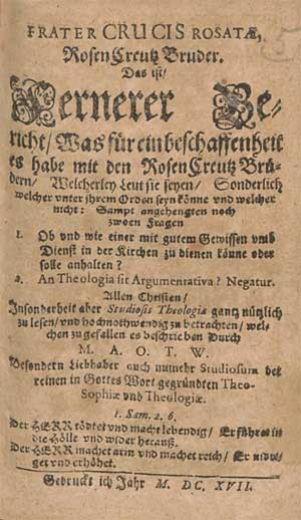 FRATER CRUCIS ROSATÆ,
Rosen Creutz Bruder.
Das ist/
Fernerer Be-
richt/ Was für ein beschaffenheit
es habe mit den Rosen Creutz Brü-
dern/ Welcherley Leut sie seyen/ Sonderlich
welcher vnter jhrem Orden seyn könne vnd welcher
nicht: Sampt angehengten noch
zween Fragen
1. Ob vnd wie einer mit gutem Gewissen vmb
Dienst in der Kirchen zu dienen könne oder
solle anhalten?
2. An Theologia sit Argumentativa? Negatur.
Allen Christen/
Insonderheit aber Studiosis Theologiæ gantz nützlich
zu lesen/ vnd hochnothwendig zu betrachten/ wel-
chen zu gefallen es beschrieben Durch
M. A. O. T. W.
Besondern Liebhaber auch nunmehr Studiosum der
reinen in Gottes Wort gegründten Theo-
Sophiæ vnd Theologiæ.
1. Sam. 2. 6.
Der HERR tödtet vnd macht lebendig/ Er führet in
die Hölle vnd wider herauß.
Der HERR machet arm vnd machet reich/ Er nidri-
get vnd erhöhet.
Gedruckt ich Jahr M. DC. XVII.